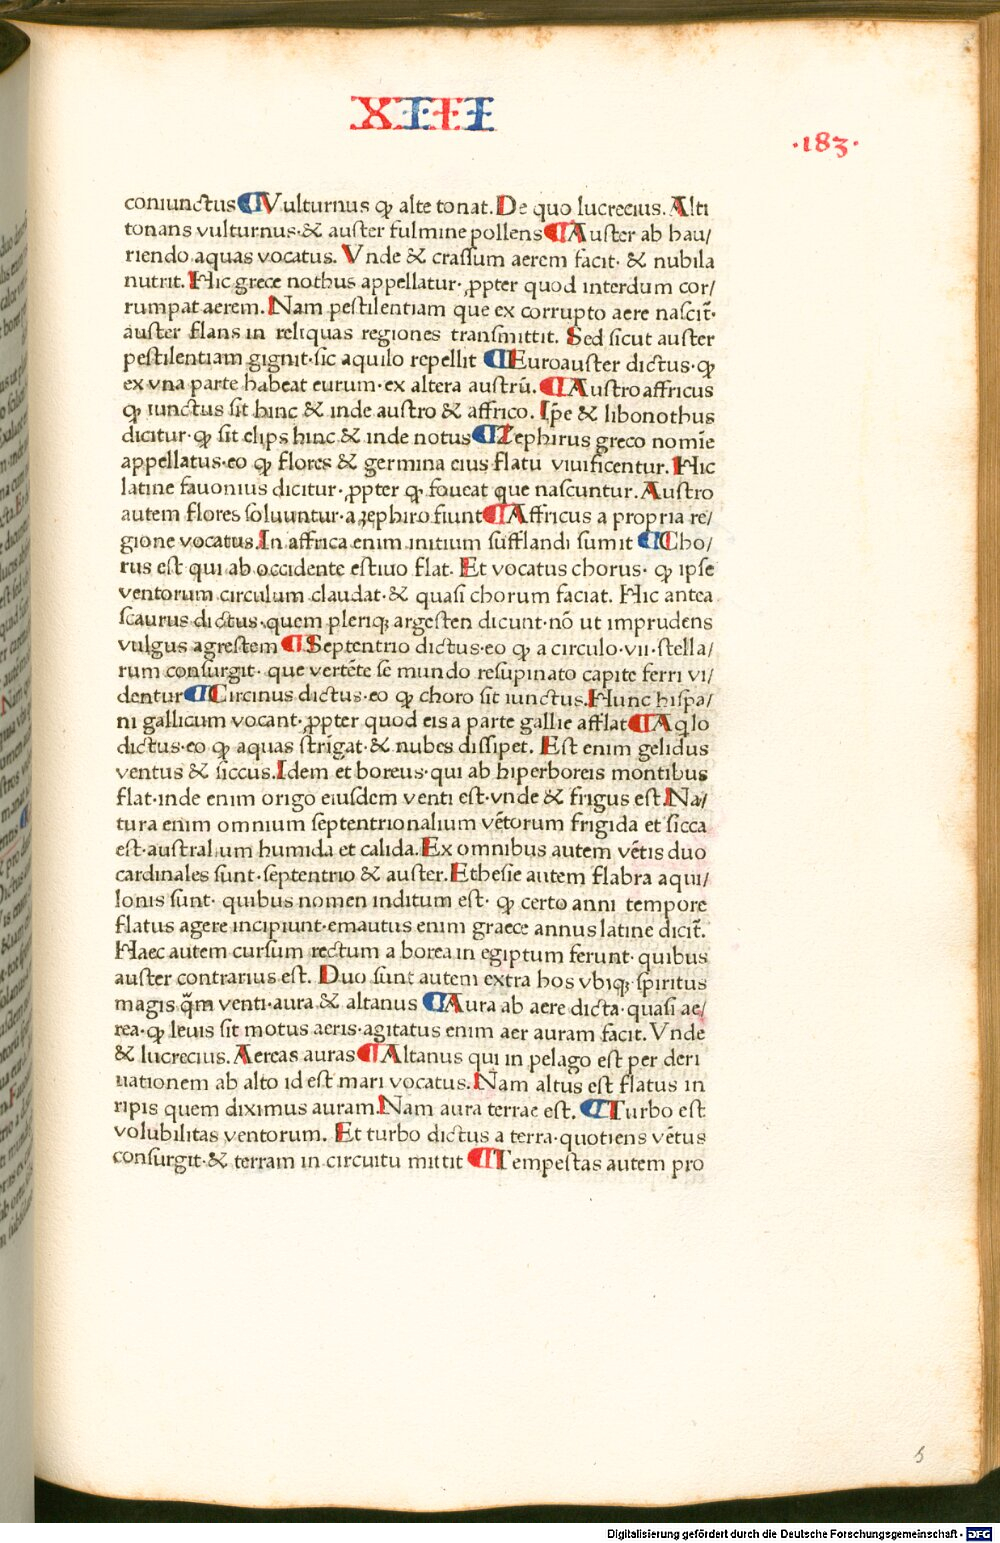 XIII
·183·
coniunctus ¶ Vulturnus ꝙ alte tonat. De quo lucrecius. Alti
tonans vulturnus·& auster fulmine pollens ¶ Auster ab hau/
riendo aquas vocatus. Vnde & crassum aerem facit· & nubila
nutrit. Hic grece nothus appellatur· ꝓpter quod interdum cor/
rumpat aerem. Nam pestilentiam que ex corrupto aere nascit᷑·
auster flans in reliquas regiones transmittit. Sed sicut auster
pestilentiam gignit·sic aquilo repellit ¶ Euroauster dictus·ꝙ
ex vna parte habeat eurum·ex altera austrū. ¶ Austroaffricus
ꝙ iunctus sit hinc & inde austro & affrico. Ip̄e & libonothus
dicitur·ꝙ sit elips hinc & inde notus ¶ Zephirus greco nomīe
appellatus·eo ꝙ flores & germina eius flatu viuificentur. Hic
latine fauonius dicitur· ꝓpter ꝙ foueat que nascuntur. Austro
autem flores soluuntur·a zephiro fiunt ¶ Affricus a propria re/
gione vocatus. In affrica enim initium sufflandi sumit ¶ Cho/
rus est qui ab occidente estiuo flat. Et vocatus chorus· ꝙ ipse
ventorum circulum claudat·& quasi chorum faciat. Hic antea
scaurus dictus·quem pleriqꝫ argesten dicunt·nō ut imprudens
vulgus agrestem ¶ Septentrio dictus·eo ꝙ a circulo·vii·stella/
rum consurgit· que vertēte se mundo resupinato capite ferri vi/
dentur ¶ Circinus dictus·eo ꝙ choro sit iunctus. Hunc hispa/
ni gallicum vocant· ꝓpter quod eis a parte gallie afflat ¶ Aqlo
dictus·eo ꝙ aquas strīgat·& nubes dissipet. Est enim gelidus
ventus & siccus. Idem et boreus·qui ab hiperboreis montibus
flat·inde enim origo eiusdem venti est·vnde & frigus est. Na/
tura enim omnium septentrionalium vētorum frigida et sicca
est·australium humida et calida. Ex omnibus autem vētis duo
cardinales sunt·septentrio & auster. Ethesie autem flabra aqui/
lonis sunt· quibus nomen inditum est· ꝙ certo anni tempore
flatus agere incipiunt·emautus enim graece annus latine dicit᷑.
Haec autem cursum rectum a borea in egiptum ferunt· quibus
auster contrarius est. Duo sunt autem extra hos vbiqꝫ spiritus
magis q̄m venti·aura & altanus ¶ Aura ab aere dicta·quasi ae/
rea·ꝙ leuis sit motus aeris·agitatus enim aer auram facit. Vnde
& lucrecius. Aereas auras ¶ Altanus qui in pelago est per deri
uationem ab alto id est mari vocatus. Nam altus est flatus in
ripis quem diximus auram. Nam aura terrae est. ¶ Turbo est
volubilitas ventorum. Et turbo dictus a terra·quotiens vētus
consurgit·& terram in circuitu mittit ¶ Tempestas autem pro
5
Digitalisierung gefördert durch die Deutsche Forschungsgemeinschaft · DFG